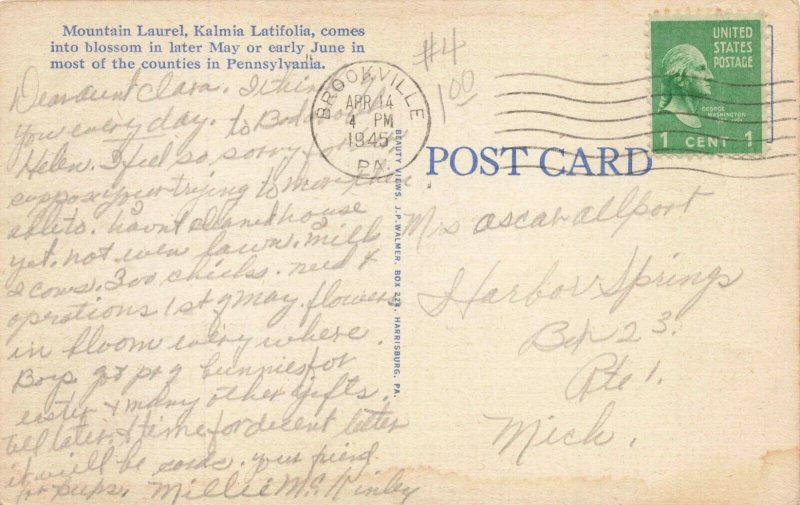 Mountain Laurel, Kalmia Latifolia, comes
into blossom in later May or early June in
most of the counties in Pennsylvania.
#4
100
BROOKVILLE
APR 14
4 PM
1945
PA.
UNITED
STATES
POSTAGE
GEORGE
WASHINGTON
1 CENT 1
POST CARD
BEAUTY VIEWS, J. P. WALMER, BOX 224, HARRISBURG, PA.
Dear aunt Clara. I think
you every day. to
Helen. I feel so sorry for
suppose your trying to
havnt cleaned house
yet. not even lawn. milk
2 cows. 300 chicks. need 4
operations 1st of May. flowers
in bloom every where.
Boys got pr g bunnies for
easter & many other gifts.
tell later. & time for decent letter
it will be cards. your friend
for pups. Millie McKinley
Mrs ascar allport
Harbor Springs
Bx 23.
Rte 1.
Mich.